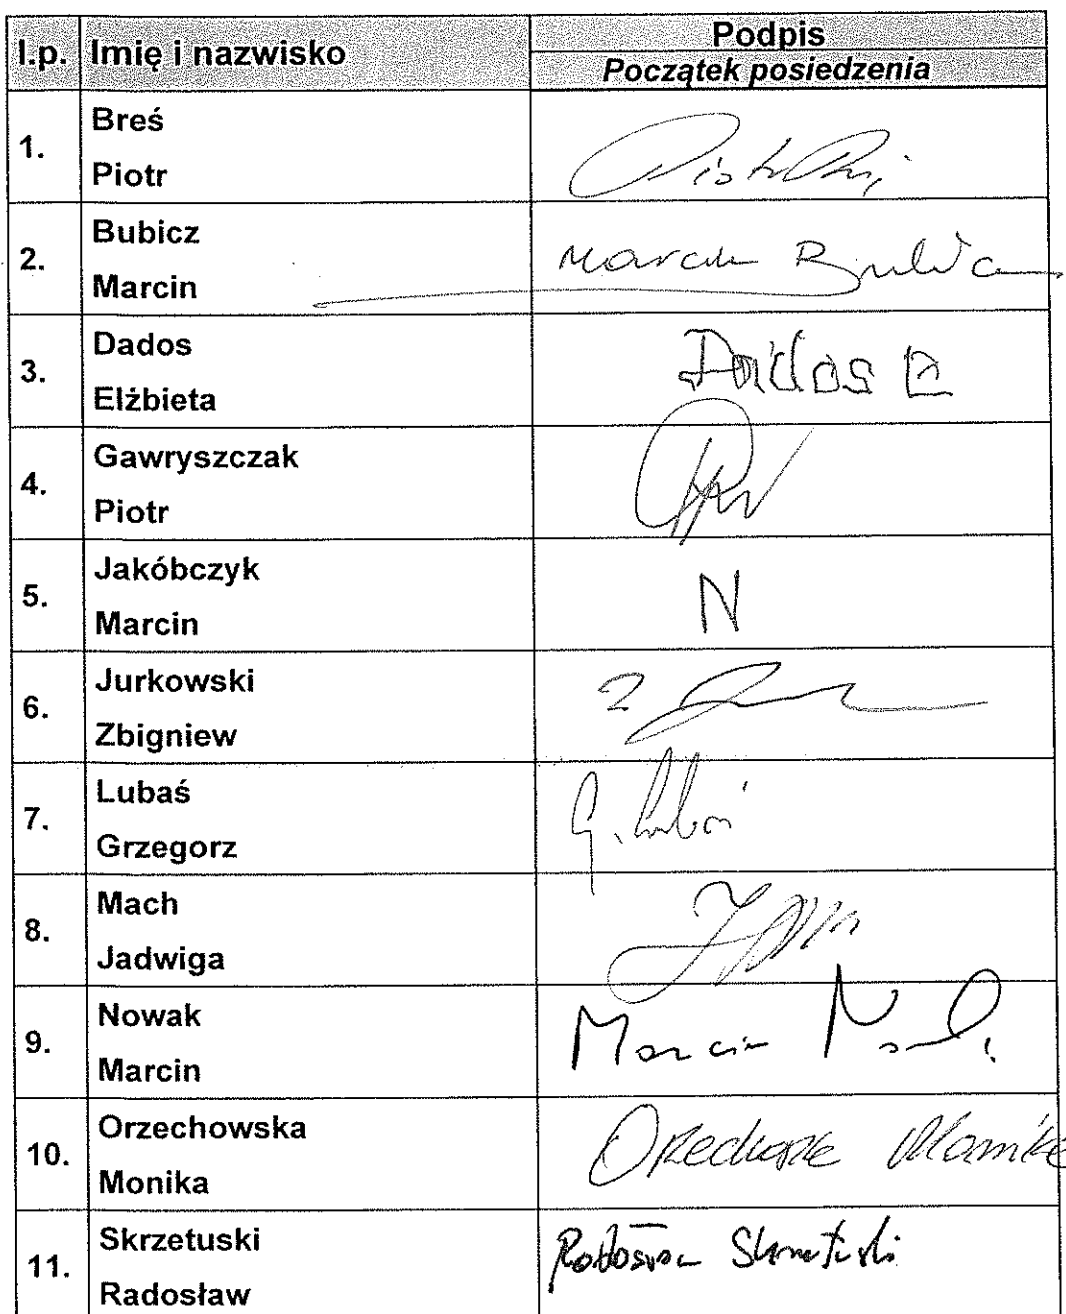 l.p. Imię i nazwisko Podpis
Początek posiedzenia
1. Breś
Piotr
2. Bubicz
Marcin
Marcin
3. Dados
Elżbieta
Dados E
4. Gawryszczak
Piotr
5. Jakóbczyk
Marcin
N
6. Jurkowski
Zbigniew
7. Lubaś
Grzegorz
G. Lubaś
8. Mach
Jadwiga
9. Nowak
Marcin
Marcin Nowak
10. Orzechowska
Monika
Monika
11. Skrzetuski
Radosław
Radosław Skrzetuski